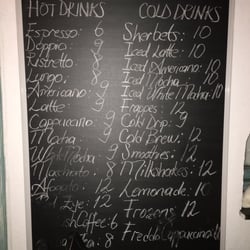 HOT DRINKS
Espresso: 6
Doppio: 9
Ristretto: 8
Lungo: 8
Americano: 9
Latte: 9
Cappuccino: 9
Mocha: 9
White Mocha:
Macchiato: 8
Affogato: 12
Eye: 12
Coffee: 6
8
COLD DRINKS
Sherbets: 10
Iced Latte: 10
Iced Americano: 10
Iced Mocha: 10
Iced White Mocha: 10
Frappes:
Cold Drip: 9
Cold Brew: 12
Smoothies: 12
Milkshakes: 12
Lemonade: 10
Frozens: 12
Freddo Cappuccino: